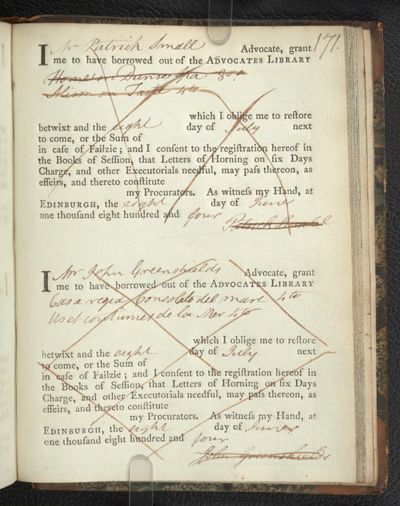 171.
I Mr Patrick Small Advocate, grant
me to have borrowed out of the ADVOCATES LIBRARY
Home on 8vo
on 4to
which I oblige me to reſtore
betwixt and the eight day of July next
to come, or the Sum of
in caſe of Failzie; and I conſent to the regiſtration hereof in
the Books of Seſſion, that Letters of Horning on ſix Days
Charge, and other Executorials needful, may paſs thereon, as
effeirs, and thereto conſtitute
my Procurators. As witneſs my Hand, at
EDINBURGH, the eight day of June
one thouſand eight hundred and four
Patrick Small
I Mr John Greenshields Advocate, grant
me to have borrowed out of the ADVOCATES LIBRARY
Casa regia del mare 4to
Us et coutumes de la Mer 4to
which I oblige me to reſtore
betwixt and the eight day of July next
to come, or the Sum of
in caſe of Failzie; and I conſent to the regiſtration hereof in
the Books of Seſſion, that Letters of Horning on ſix Days
Charge, and other Executorials needful, may paſs thereon, as
effeirs, and thereto conſtitute
my Procurators. As witneſs my Hand, at
EDINBURGH, the eight day of June
one thouſand eight hundred and four
John Greenshields